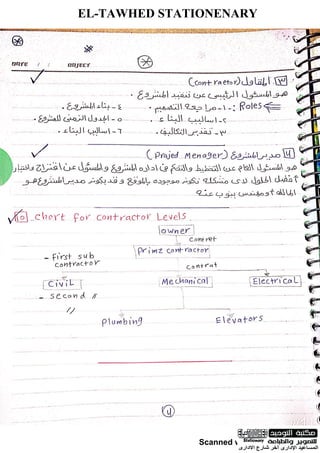 EL-TAWHED STATIONENARY
DATE / / OBJECT
٣ المقاول (contractor)
هو المسئول الرئيسى عن تنفيذ المشروع .
Roles :- ١- مراجعة التصميم . ٤- بناء المشروع .
٢- اساليب البناء . ٥- الجدول الزمنى للمشروع .
٣- تقدير التكاليف . ٦- اساليب البناء .
٤ مدير المشروع (Projed Menager)
هو المسئول العام عن التخطيط والتحكم فى ادارة المشروع والمسئول عن اقتراح واختيار
أفضل الحلول لاى مشكلة تكون موجودة بالموقع وقد يكون مدير المشروع هو
المالك او مهندس ينوب عنه
chart for contractor Levels
owner
contret
Prime contractor
- First sub
contractor
contrat
Civil
Mechanical
Electrical
- second "
"
Plumbing
Elevators
٤
Scanned
مكتبة التوحيد
Stationery
للتصوير والطباعة
المساعيد الإدارى آخر شارع الإدارى